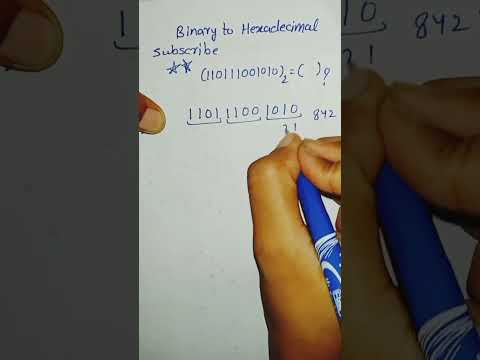 Binary to Hexadecimal
Subscribe
(110111001010)₂=( )?
1101 1100 1010 842
21